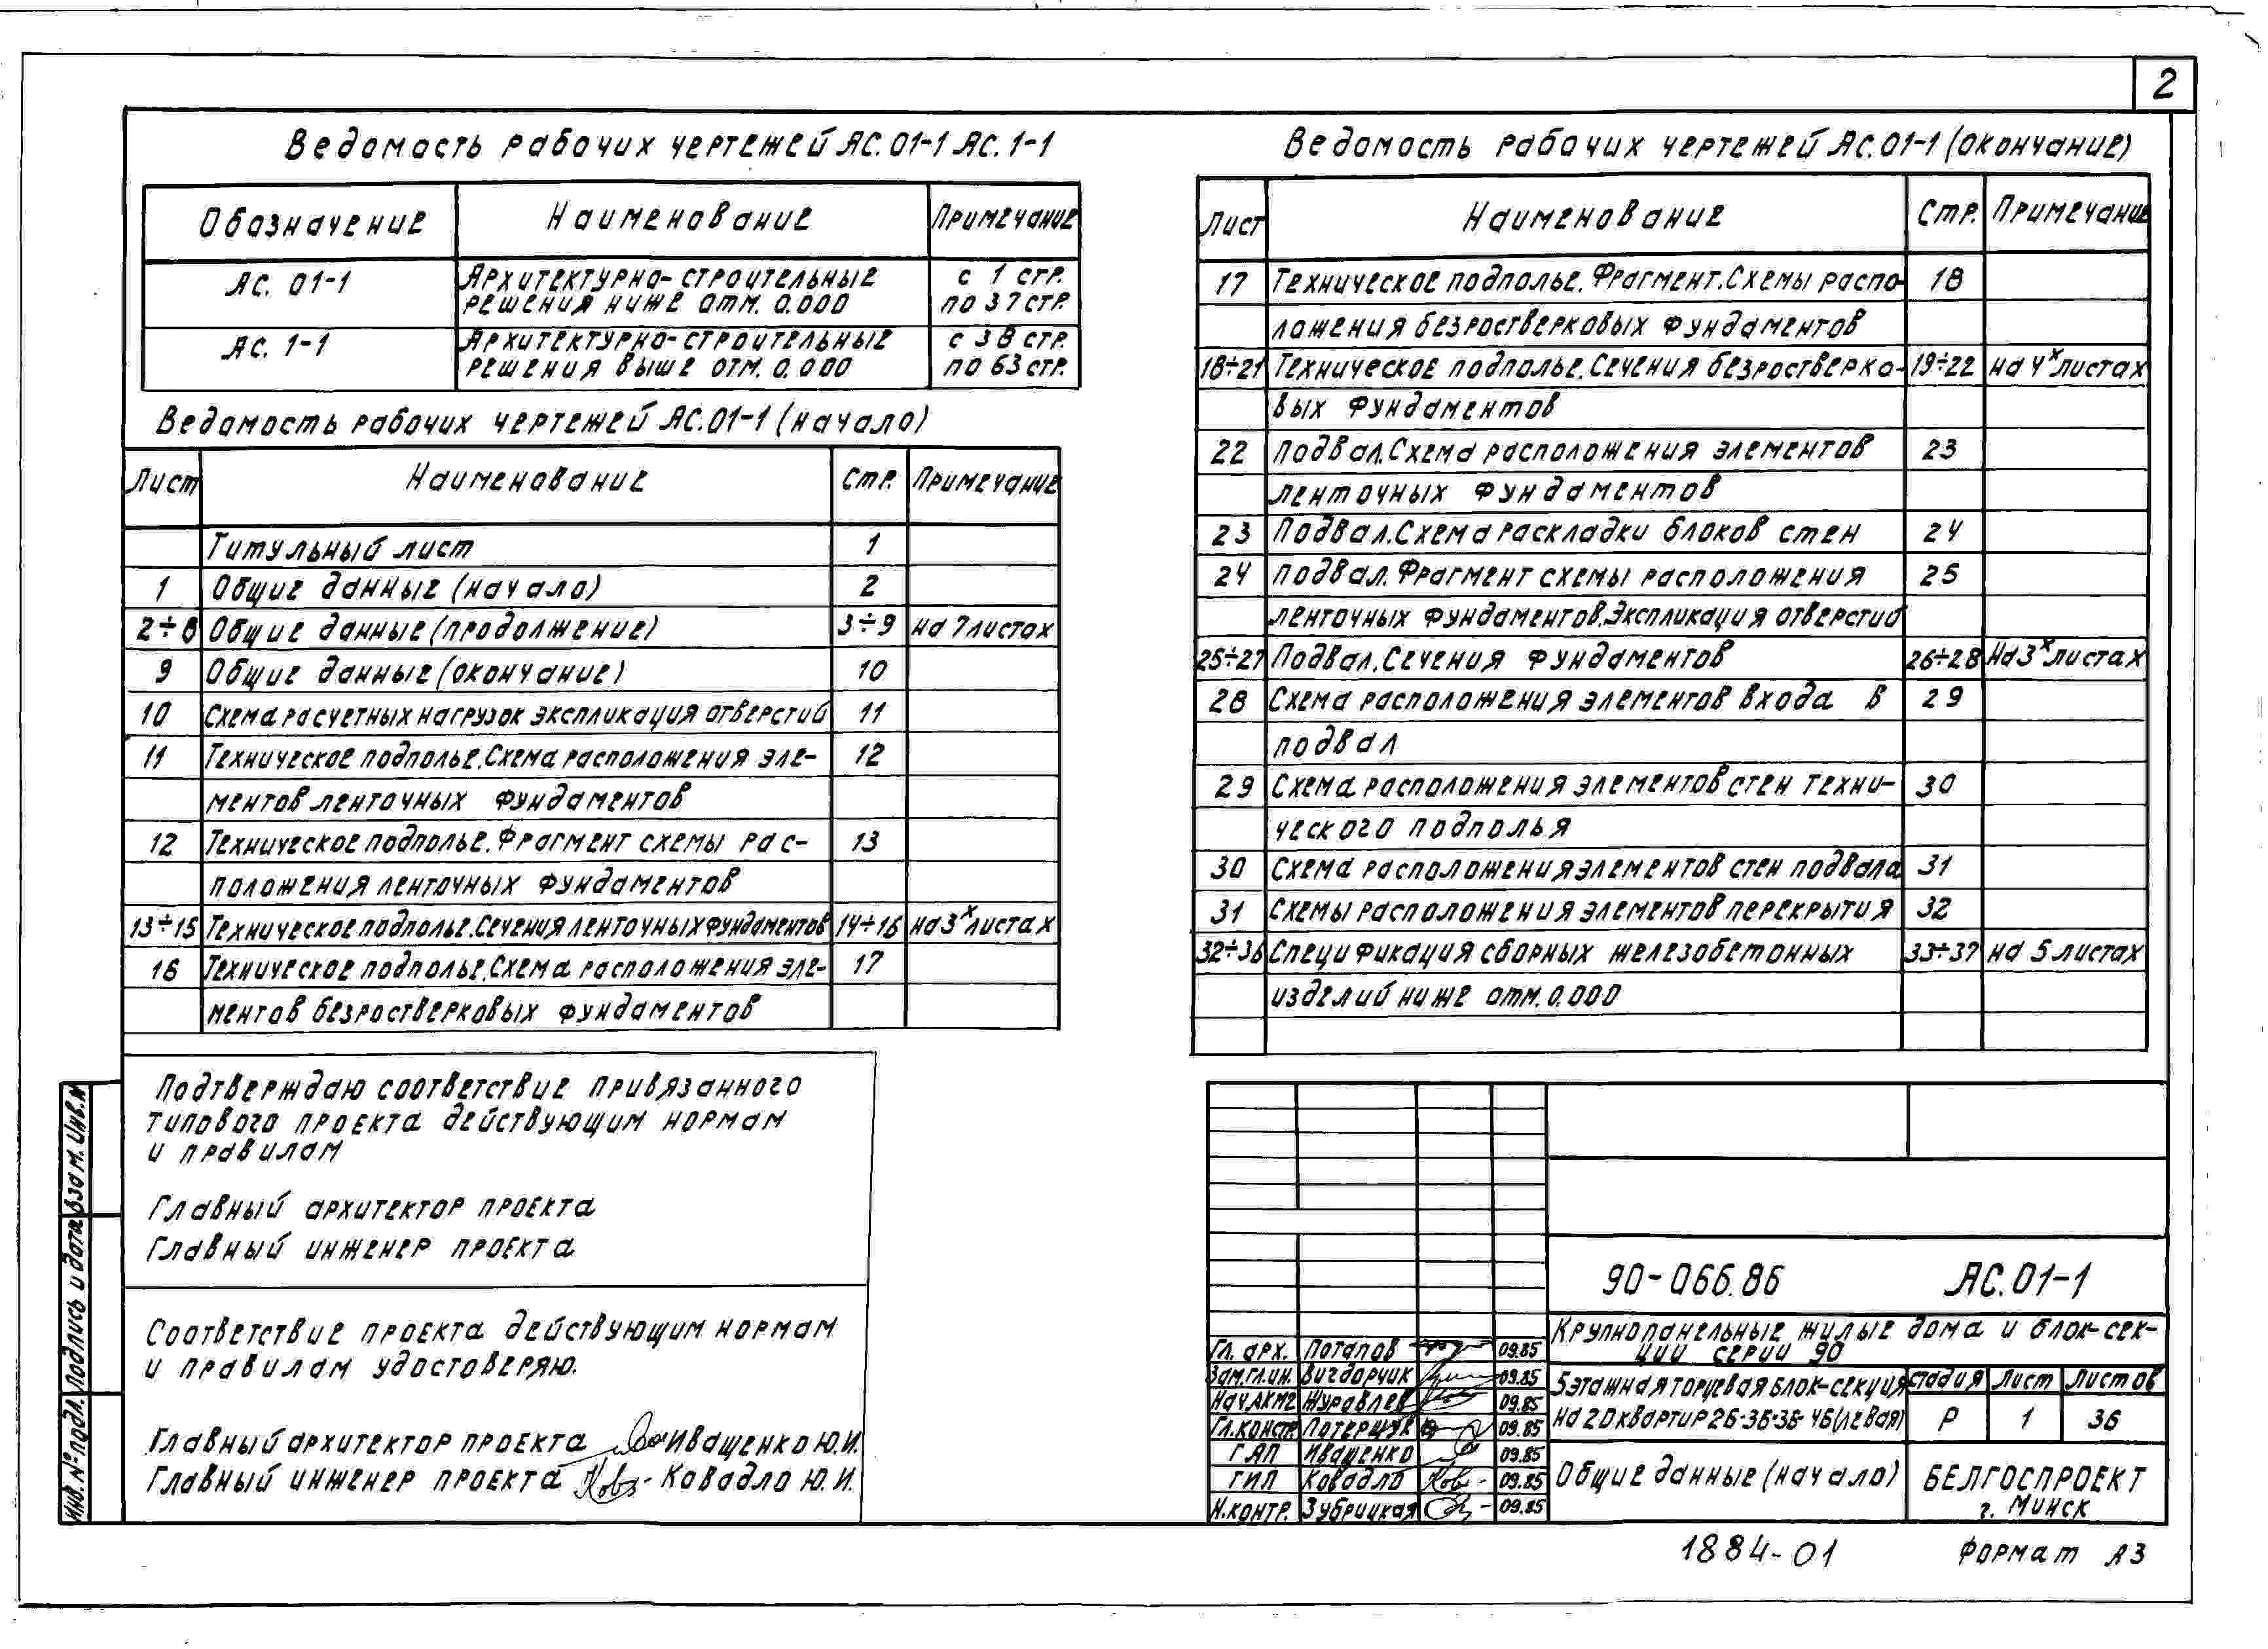 2
Ведомость рабочих чертежей АС.01-1 АС.1-1
Обозначение Наименование Примечание
АС. 01-1 Архитектурно-строительные с 1 стр.
решения ниже отм. 0.000 по 37 стр.
АС. 1-1 Архитектурно-строительные с 38 стр.
решения выше отм. 0.000 по 63 стр.
Ведомость рабочих чертежей АС.01-1 (начало)
Лист Наименование Стр. Примечание
Титульный лист 1
1 Общие данные (начало) 2
2÷8 Общие данные (продолжение) 3÷9 на 7 листах
9 Общие данные (окончание) 10
10 Схема расчетных нагрузок экспликация отверстий 11
11 Техническое подполье. Схема расположения эле- 12
ментов ленточных фундаментов
12 Техническое подполье. Фрагмент схемы рас- 13
положения ленточных фундаментов
13÷15 Техническое подполье. Сечения ленточных фундаментов 14÷16 на 3х листах
16 Техническое подполье. Схема расположения эле- 17
ментов безростверковых фундаментов
Ведомость рабочих чертежей АС.01-1 (окончание)
Лист Наименование Стр. Примечание
17 Техническое подполье. Фрагмент. Схемы распо- 18
ложения безростверковых фундаментов
18÷21 Техническое подполье. Сечения безростверко- 19÷22 на 4х листах
вых фундаментов
22 Подвал. Схема расположения элементов 23
ленточных фундаментов
23 Подвал. Схема раскладки блоков стен 24
24 Подвал. Фрагмент схемы расположения 25
ленточных фундаментов. Экспликация отверстий
25÷27 Подвал. Сечения фундаментов 26÷28 На 3х листах
28 Схема расположения элементов входа в 29
подвал
29 Схема расположения элементов стен техни- 30
ческого подполья
30 Схема расположения элементов стен подвала 31
31 Схемы расположения элементов перекрытия 32
32÷36 Спецификация сборных железобетонных 33÷37 на 5 листах
изделий ниже отм. 0.000
Подтверждаю соответствие привязанного
типового проекта действующим нормам
и правилам
Главный архитектор проекта
Главный инженер проекта
Соответствие проекта действующим нормам
и правилам удостоверяю.
Главный архитектор проекта Иващенко Ю.И.
Главный инженер проекта Ковадло Ю.И.
Взам. инв.№
Подпись и дата
Инв.№ подл.
90-066.86 АС.01-1
Крупнопанельные жилые дома и блок-сек-
ции серии 90
Гл. арх. Потапов 09.85
Зам.гл.ин. Вигдорчик 09.85
Нач.АКМ2 Журавлев 09.85
Гл.констр. Потерщук 09.85
ГАП Иващенко 09.85
ГИП Ковадло 09.85
Н.контр. Зубрицкая 09.85
5этажная торцевая блок-секция
на 20 квартир 2Б-3Б-3Б-4Б (левая)
стадия Лист Листов
Р 1 36
Общие данные (начало)
БЕЛГОСПРОЕКТ
г. Минск
1884-01 Формат А3